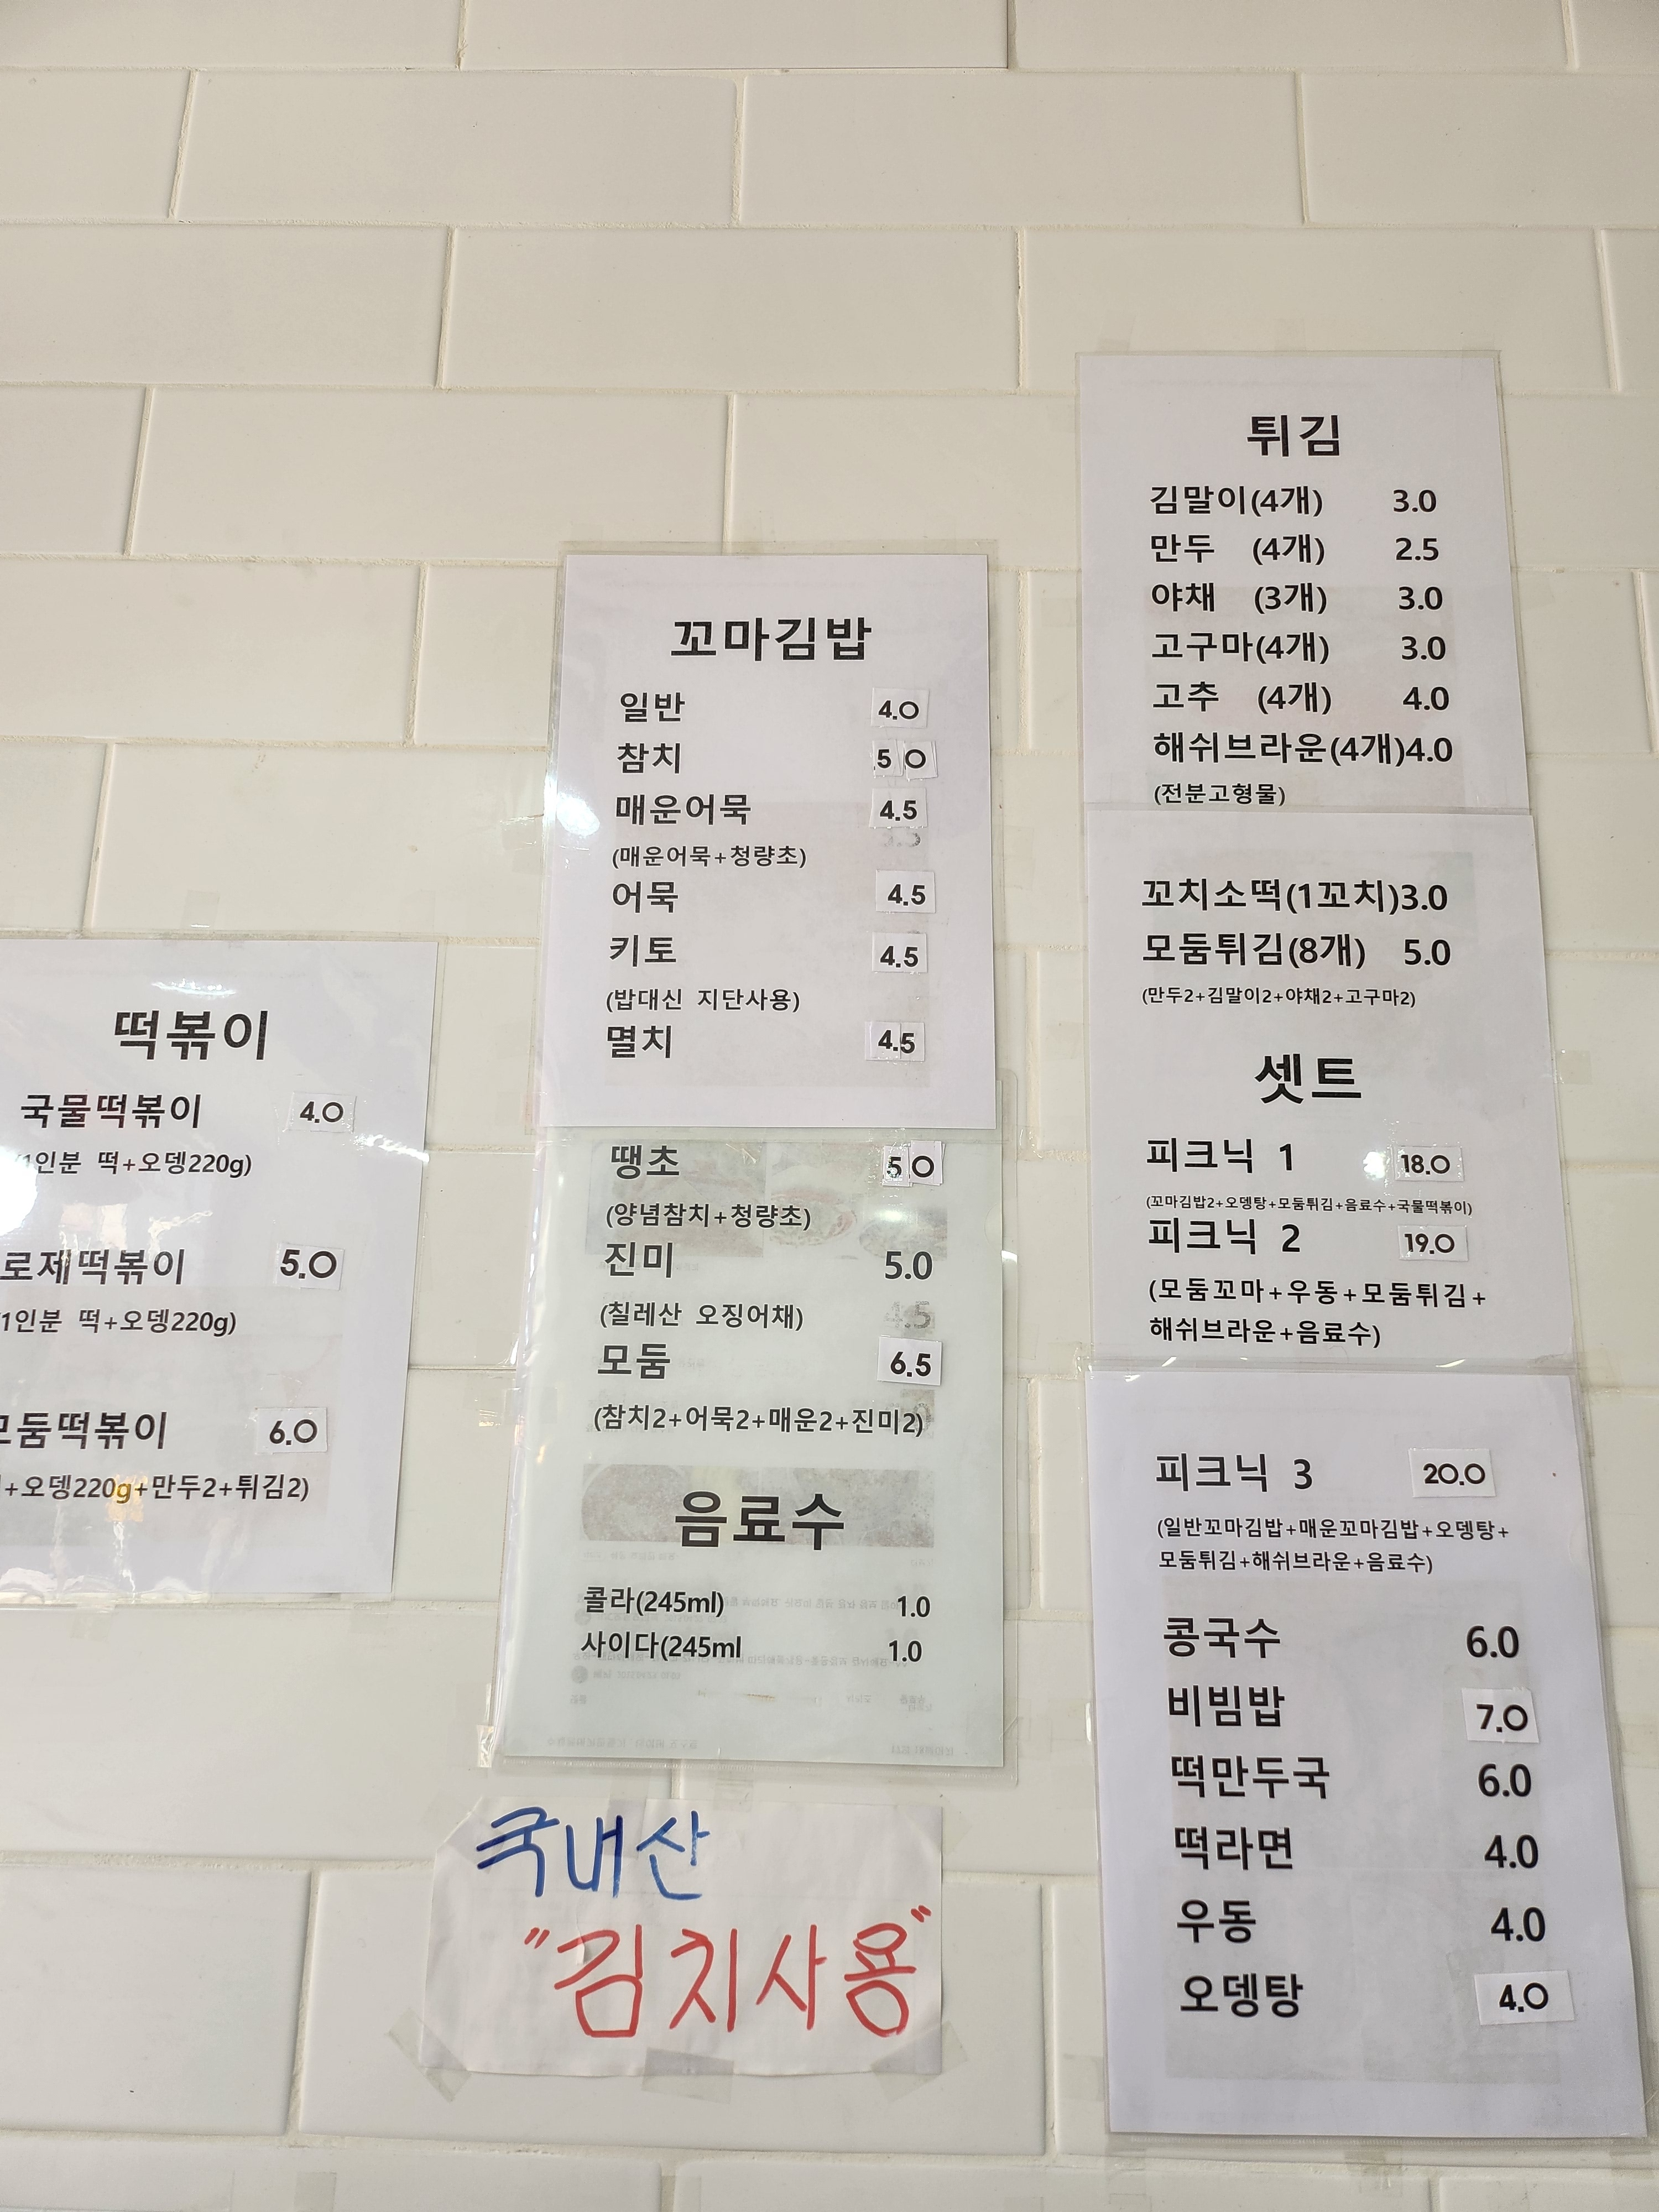 떡볶이
국물떡볶이 4.0
1인분 떡+오뎅220g)
로제떡볶이 5.0
1인분 떡+오뎅220g)
모둠떡볶이 6.0
+오뎅220g+만두2+튀김2)
꼬마김밥
일반 4.0
참치 5 0
매운어묵 4.5
(매운어묵+청량초)
어묵 4.5
키토 4.5
(밥대신 지단사용)
멸치 4.5
땡초 5.0
(양념참치+청량초)
진미 5.0
(칠레산 오징어채) 4.5
모둠 6.5
(참치2+어묵2+매운2+진미2)
음료수
콜라(245ml) 1.0
사이다(245ml 1.0
국내산
"김치사용"
튀김
김말이(4개) 3.0
만두 (4개) 2.5
야채 (3개) 3.0
고구마(4개) 3.0
고추 (4개) 4.0
해쉬브라운(4개)4.0
(전분고형물)
꼬치소떡(1꼬치)3.0
모둠튀김(8개) 5.0
(만두2+김말이2+야채2+고구마2)
셋트
피크닉 1 18.0
(꼬마김밥2+오뎅탕+모둠튀김+음료수+국물떡볶이)
피크닉 2 19.0
(모둠꼬마+우동+모둠튀김+
해쉬브라운+음료수)
피크닉 3 20.0
(일반꼬마김밥+매운꼬마김밥+오뎅탕+
모둠튀김+해쉬브라운+음료수)
콩국수 6.0
비빔밥 7.0
떡만두국 6.0
떡라면 4.0
우동 4.0
오뎅탕 4.0